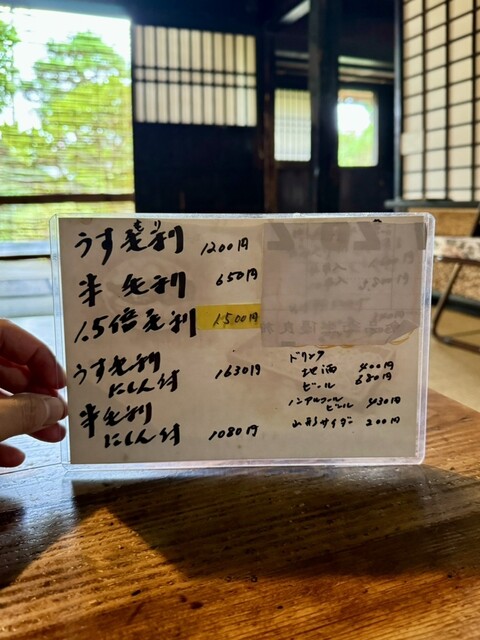 うす毛利 1200円
もり
半 毛利 650円
1.5倍毛利 1500円
うす毛利
にしん付 1630円
半毛利
にしん付 1080円
ドリンク
地酒 400円
ビール 680円
ノンアルコール
ビール 430円
山形サイダー 200円